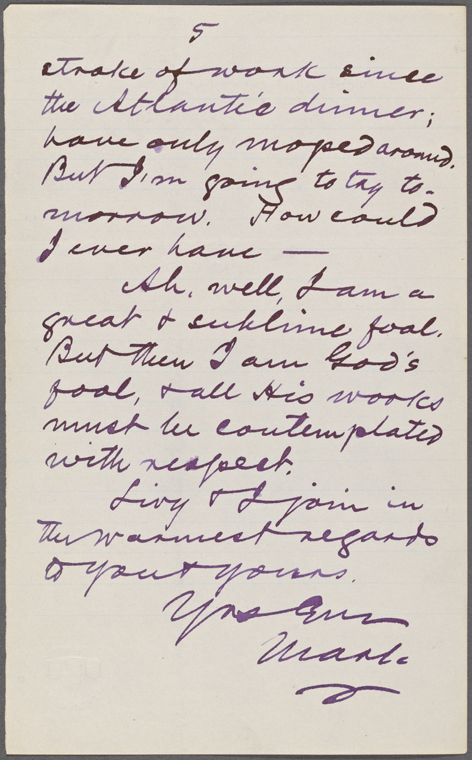 5
stroke of work since
the Atlantic dinner;
have only moped around.
But I'm going to try to-
morrow. How could
I ever have —
Ah, well, I am a
great & sublime fool.
But then I am God's
fool, & all His works
must be contemplated
with respect.
Livy & I join in
the warmest regards
to you & yours.
Yrs Ever
Mark